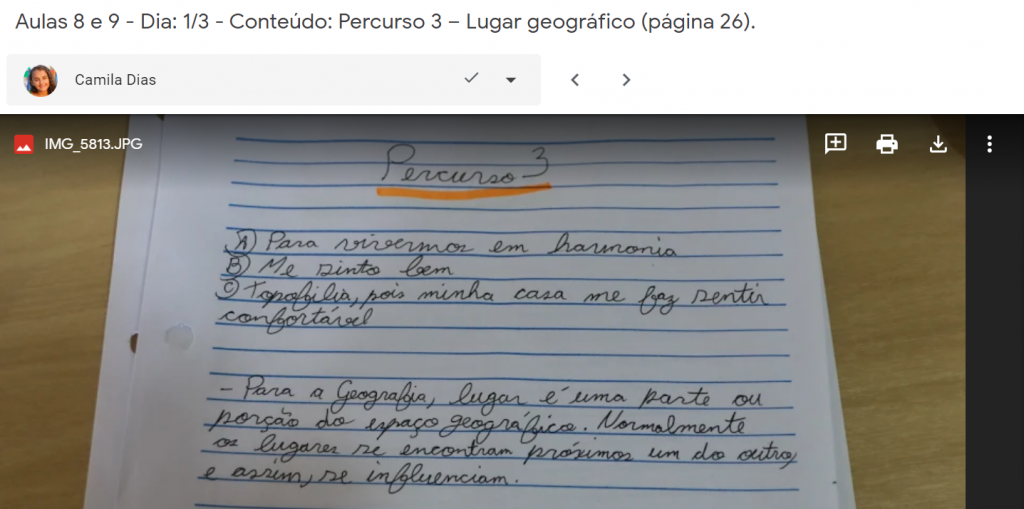 Aulas 8 e 9 - Dia: 1/3 - Conteúdo: Percurso 3 – Lugar geográfico (página 26).
Camila Dias
IMG_5813.JPG
Percurso 3
A) Para vivermos em harmonia
B) Me sinto bem
C) Topofilia, pois minha casa me faz sentir
confortável
- Para a Geografia, lugar é uma parte ou
porção do espaço geográfico. Normalmente
os lugares se encontram próximos um do outro,
e assim, se influenciam.